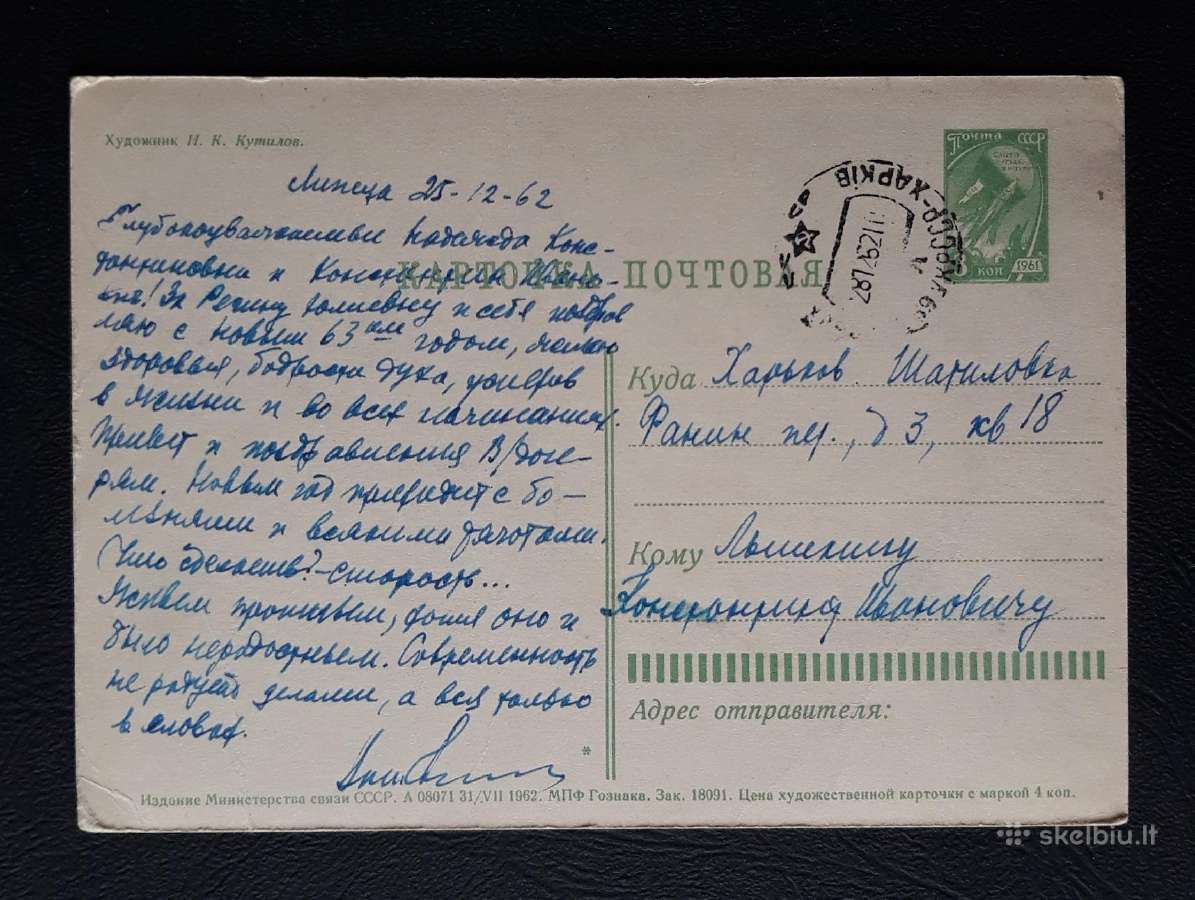 Художник И. К. Кутилов.
Почта СССР
коп 1961
ХАРКІВ
Липецк 25-12-62
Глубокоуважаемые Надежда Конс-
тантиновна и Константин Ивано-
вич! За Регину Юлиевну и себя поздрав
ляю с новым 63им годом, желаю
здоровья, бодрости духа, успехов
в жизни и во всех начинаниях.
Привет и поздравления В/доче-
рям. Новый год приходит с бо-
лезнями и всякими заботами.
Что сделаешь? - старость...
Живем прошлым, хотя оно и
было нерадостным. Современность
не радует делами, а вся только
в словах.
КАРТОЧКА ПОЧТОВАЯ
Куда Харьков. Шатиловка
Фанин пер., д 3, кв 18
Кому
Константину Ивановичу
Адрес отправителя:
*
Издание Министерства связи СССР. А 08071 31/VII 1962. МПФ Гознака. Зак. 18091. Цена художественной карточки с маркой 4 коп.
skelbiu.lt